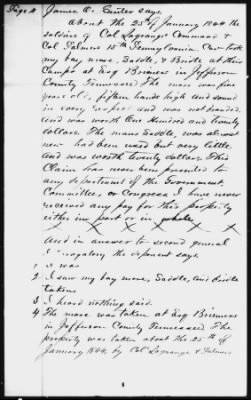 Page 4 James C. Carter says.
About the 25th of January 1864 the
soldiers of Col Lagrange Command &
Col Palmers 15th Pennsylvania Cav took
my bay mare, Saddle, & Bridle at their
Camps at Esq Brimers in Jefferson
County Tennessee The mare was five
year old, fifteen hands high and sound
in every respect and was not branded
and was worth One Hundred and twenty
dollars. The mans Saddle, was almost
new had been used but very little
and was worth twenty dollars. This
Claim has never been presented to
any department of the Government,
Committee, or Congress I have never
received any pay for this property
either in part or in whole.
X X X X X X X
And in answer to second general
Interrogatory the deponent says.
1 I was
2 I saw my bay mare, Saddle, and Bridle
taken
3 I heard nothing said.
4 The mare was taken at Esq Brimers
in Jefferson County Tennessee The
property was taken about the 25th of
January 1864, by Col Lagrange & Palmers